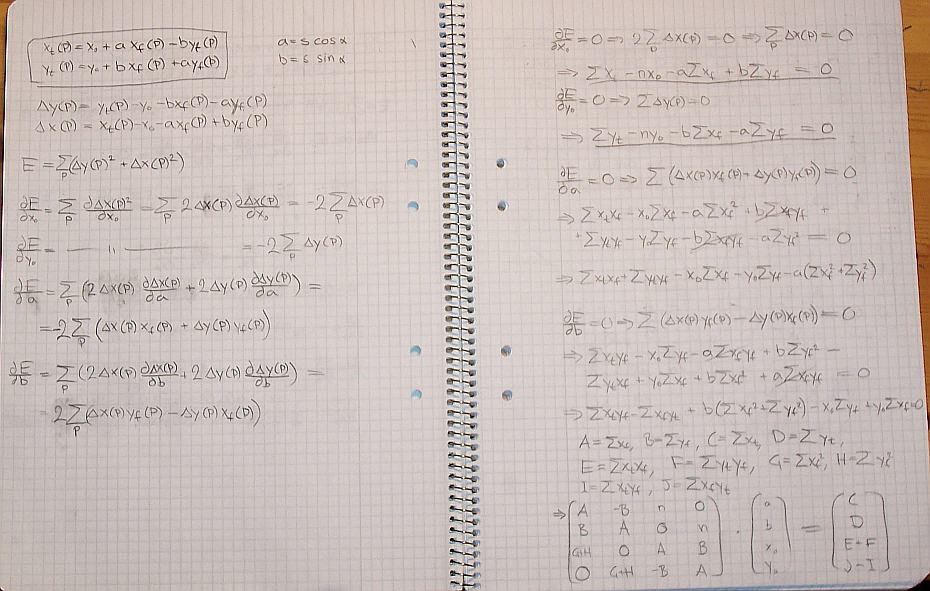 x_t(p) = x_0 + a x_f(p) - b y_f(p)
y_t(p) = y_0 + b x_f(p) + a y_f(p)
a = s cos α
b = s sin α
Δy(p) = y_t(p) - y_0 - b x_f(p) - a y_f(p)
Δx(p) = x_t(p) - x_0 - a x_f(p) + b y_f(p)
E = Σ_p (Δy(p)² + Δx(p)²)
∂E/∂x_0 = Σ_p ∂Δx(p)²/∂x_0 = Σ_p 2Δx(p) ∂Δx(p)/∂x_0 = -2 Σ_p Δx(p)
∂E/∂y_0 = —— " —— = -2 Σ_p Δy(p)
∂E/∂a = Σ_p (2Δx(p) ∂Δx(p)/∂a + 2Δy(p) ∂Δy(p)/∂a) =
= -2 Σ_p (Δx(p) x_f(p) + Δy(p) y_f(p))
∂E/∂b = Σ_p (2Δx(p) ∂Δx(p)/∂b + 2Δy(p) ∂Δy(p)/∂b) =
= 2 Σ_p (Δx(p) y_f(p) - Δy(p) x_f(p))
∂E/∂x_0 = 0 ⇒ 2 Σ_p Δx(p) = 0 ⇒ Σ_p Δx(p) = 0
⇒ Σx_t - nx_0 - aΣx_f + bΣy_f = 0
∂E/∂y_0 = 0 ⇒ ΣΔy(p) = 0
⇒ Σy_t - ny_0 - bΣx_f - aΣy_f = 0
∂E/∂a = 0 ⇒ Σ(Δx(p)x_f(p) + Δy(p)y_f(p)) = 0
⇒ Σx_tx_f - x_0Σx_f - aΣx_f² + bΣx_fy_f +
+ Σy_ty_f - y_0Σy_f - bΣx_fy_f - aΣy_f² = 0
⇒ Σx_tx_f + Σy_ty_f - x_0Σx_f - y_0Σy_f - a(Σx_f² + Σy_f²)
∂E/∂b = 0 ⇒ Σ(Δx(p)y_f(p) - Δy(p)x_f(p)) = 0
⇒ Σx_ty_f - x_0Σy_f - aΣx_fy_f + bΣy_f² -
Σy_tx_f + y_0Σx_f + bΣx_f² + aΣx_fy_f = 0
⇒ Σx_ty_f - Σx_fy_t + b(Σx_f² + Σy_f²) - x_0Σy_f + y_0Σx_f = 0
A = Σx_f, B = Σy_f, C = Σx_t, D = Σy_t,
E = Σx_tx_f, F = Σy_ty_f, G = Σx_f², H = Σy_f²
I = Σx_ty_f, J = Σx_fy_t
⇒ (A -B n 0 · (a = (C
B A 0 n b D
G+H 0 A B x_0 E+F
0 G+H -B A) y_0) J-I)